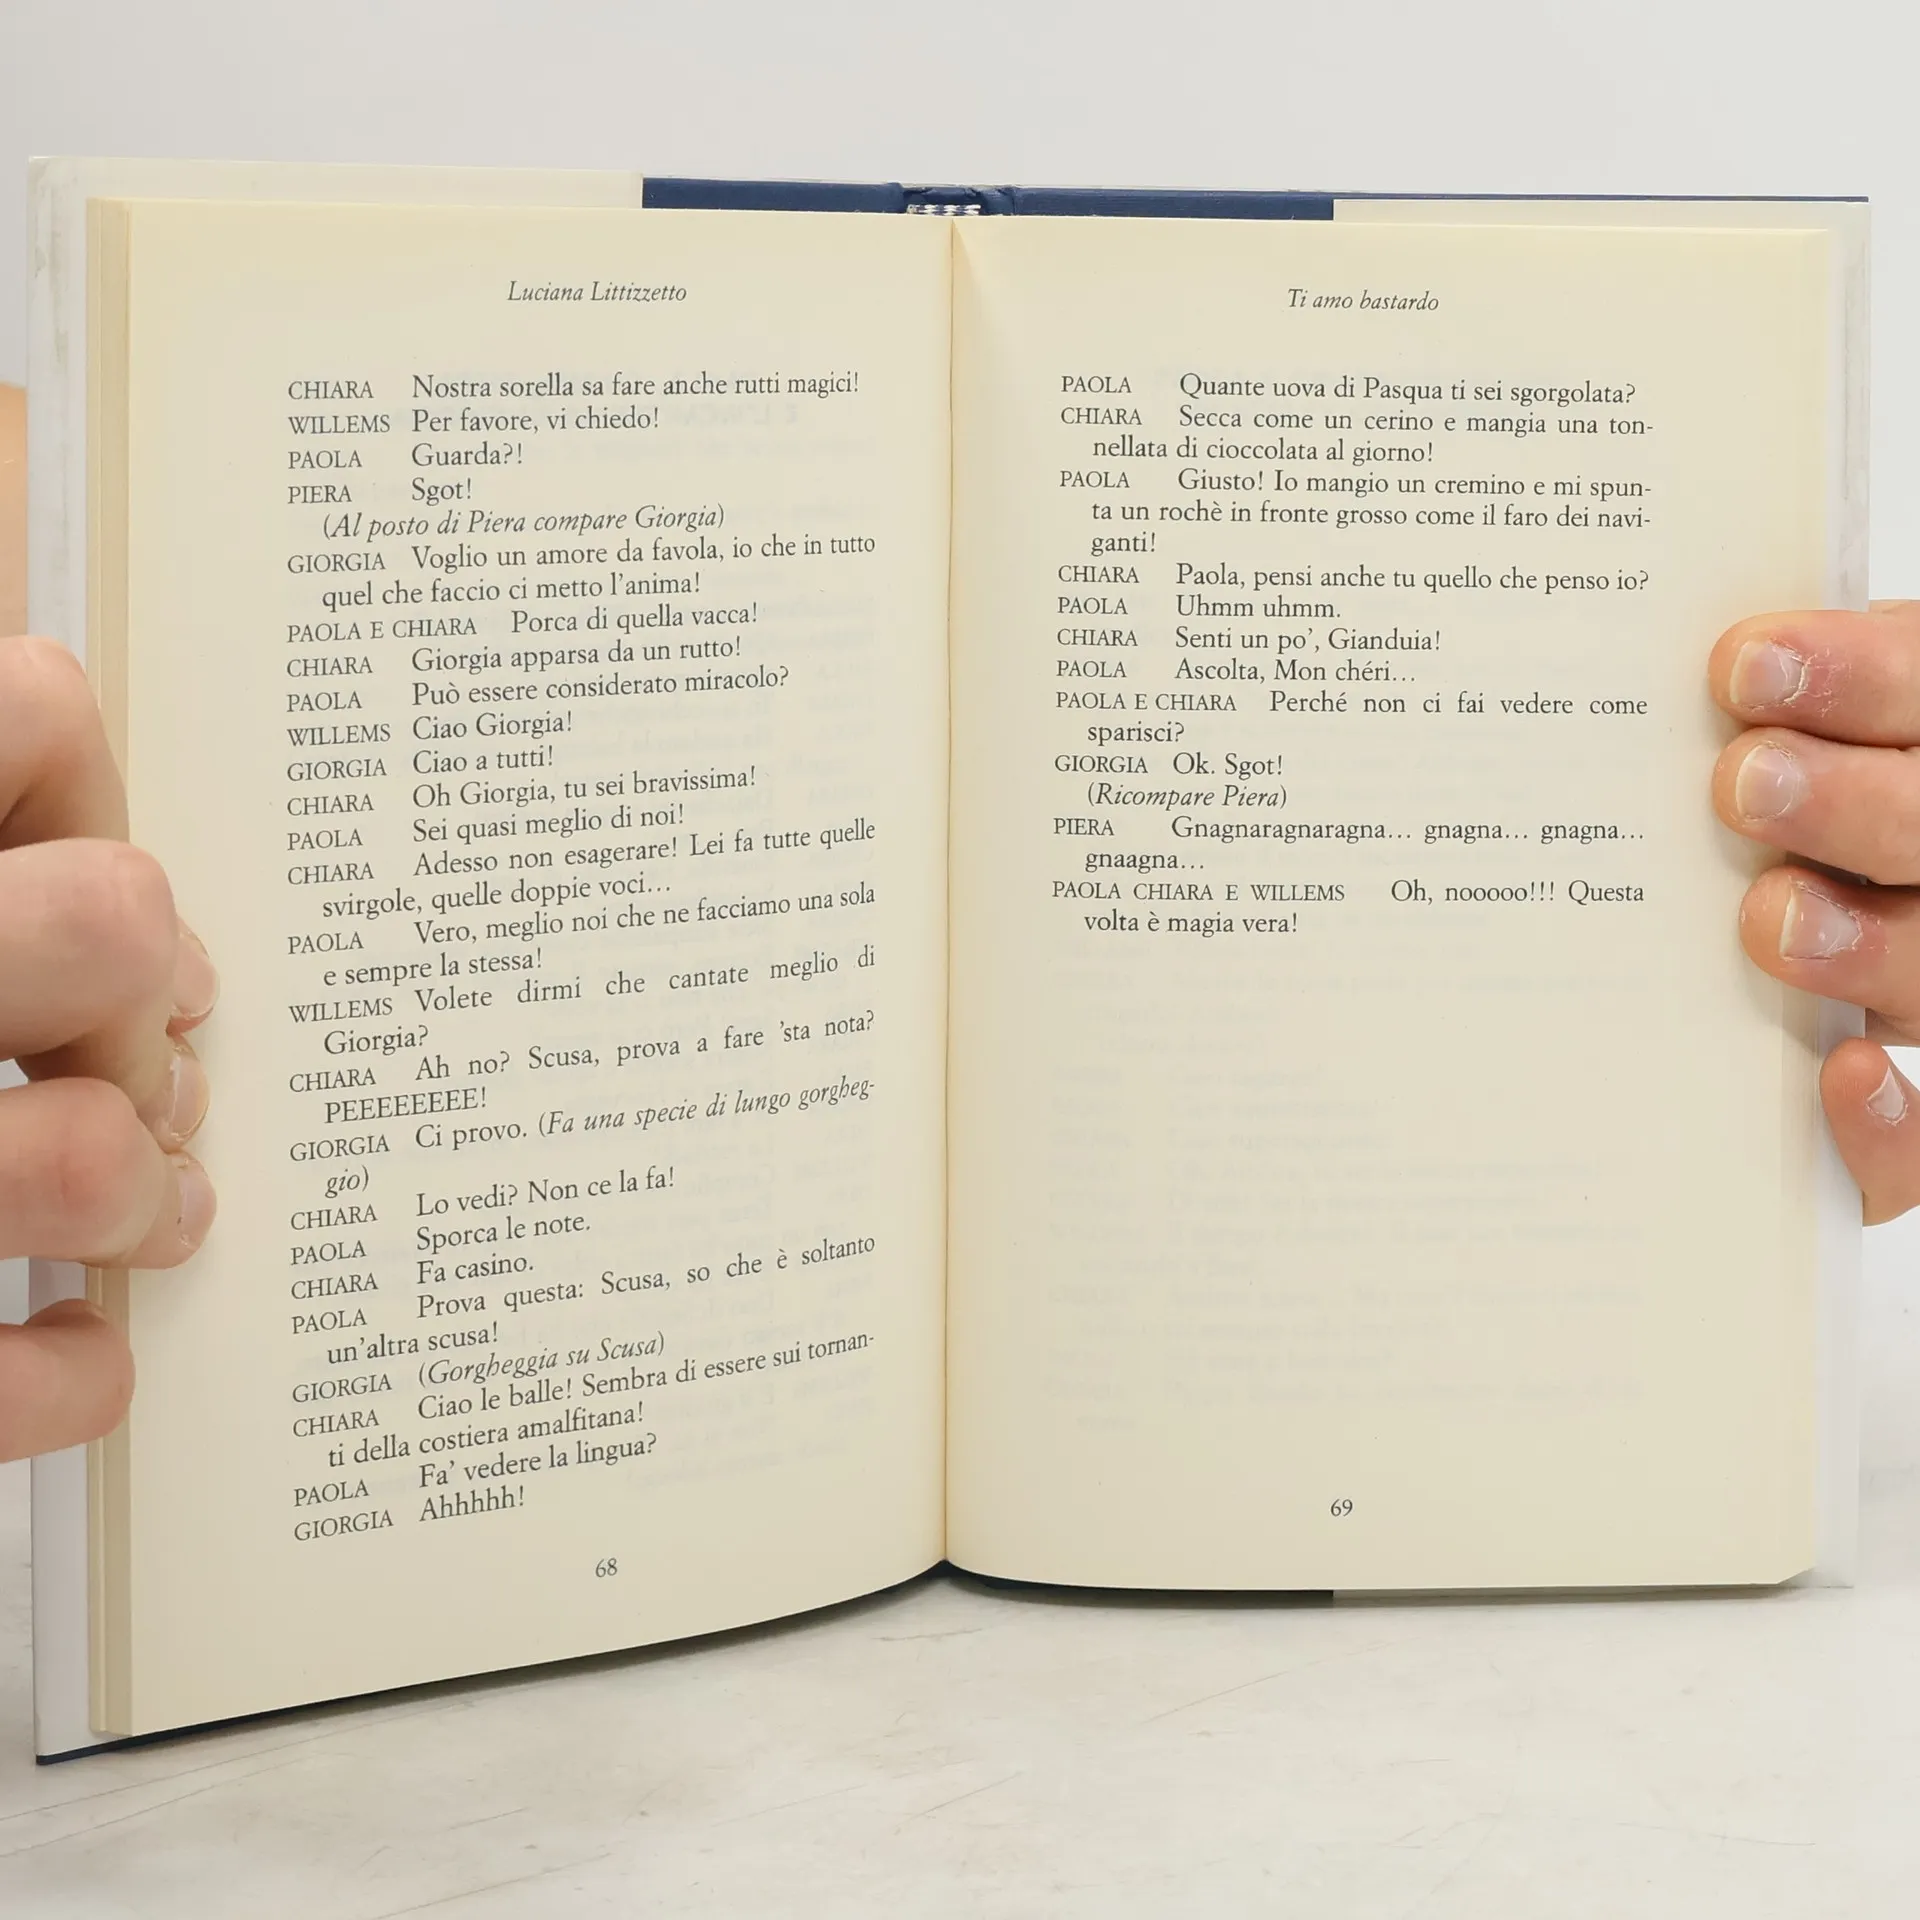 Luciana Littizzetto
CHIARA Nostra sorella sa fare anche rutti magici!
WILLEMS Per favore, vi chiedo!
PAOLA Guarda?!
PIERA Sgot!
(Al posto di Piera compare Giorgia)
GIORGIA Voglio un amore da favola, io che in tutto
quel che faccio ci metto l'anima!
PAOLA E CHIARA Porca di quella vacca!
CHIARA Giorgia apparsa da un rutto!
PAOLA Può essere considerato miracolo?
WILLEMS Ciao Giorgia!
GIORGIA Ciao a tutti!
CHIARA Oh Giorgia, tu sei bravissima!
PAOLA Sei quasi meglio di noi!
CHIARA Adesso non esagerare! Lei fa tutte quelle
svirgole, quelle doppie voci...
PAOLA Vero, meglio noi che ne facciamo una sola
e sempre la stessa!
WILLEMS Volete dirmi che cantate meglio di
Giorgia?
CHIARA Ah no? Scusa, prova a fare 'sta nota?
PEEEEEEEE!
GIORGIA Ci provo. (Fa una specie di lungo gorgheg-
gio)
CHIARA Lo vedi? Non ce la fa!
PAOLA Sporca le note.
CHIARA Fa casino.
PAOLA Prova questa: Scusa, so che è soltanto
un'altra scusa!
GIORGIA (Gorgheggia su Scusa)
CHIARA Ciao le balle! Sembra di essere sui tornan-
ti della costiera amalfitana!
PAOLA Fa' vedere la lingua?
GIORGIA Ahhhhh!
68
Ti amo bastardo
PAOLA Quante uova di Pasqua ti sei sgorgolata?
CHIARA Secca come un cerino e mangia una ton-
nellata di cioccolata al giorno!
PAOLA Giusto! Io mangio un cremino e mi spun-
ta un rochè in fronte grosso come il faro dei navi-
ganti!
CHIARA Paola, pensi anche tu quello che penso io?
PAOLA Uhmm uhmm.
CHIARA Senti un po', Gianduia!
PAOLA Ascolta, Mon chéri...
PAOLA E CHIARA Perché non ci fai vedere come
sparisci?
GIORGIA Ok. Sgot!
(Ricompare Piera)
PIERA Gnagnaragnaragna... gnagna... gnagna...
gnaagna...
PAOLA CHIARA E WILLEMS Oh, nooooo!!! Questa
volta è magia vera!
69